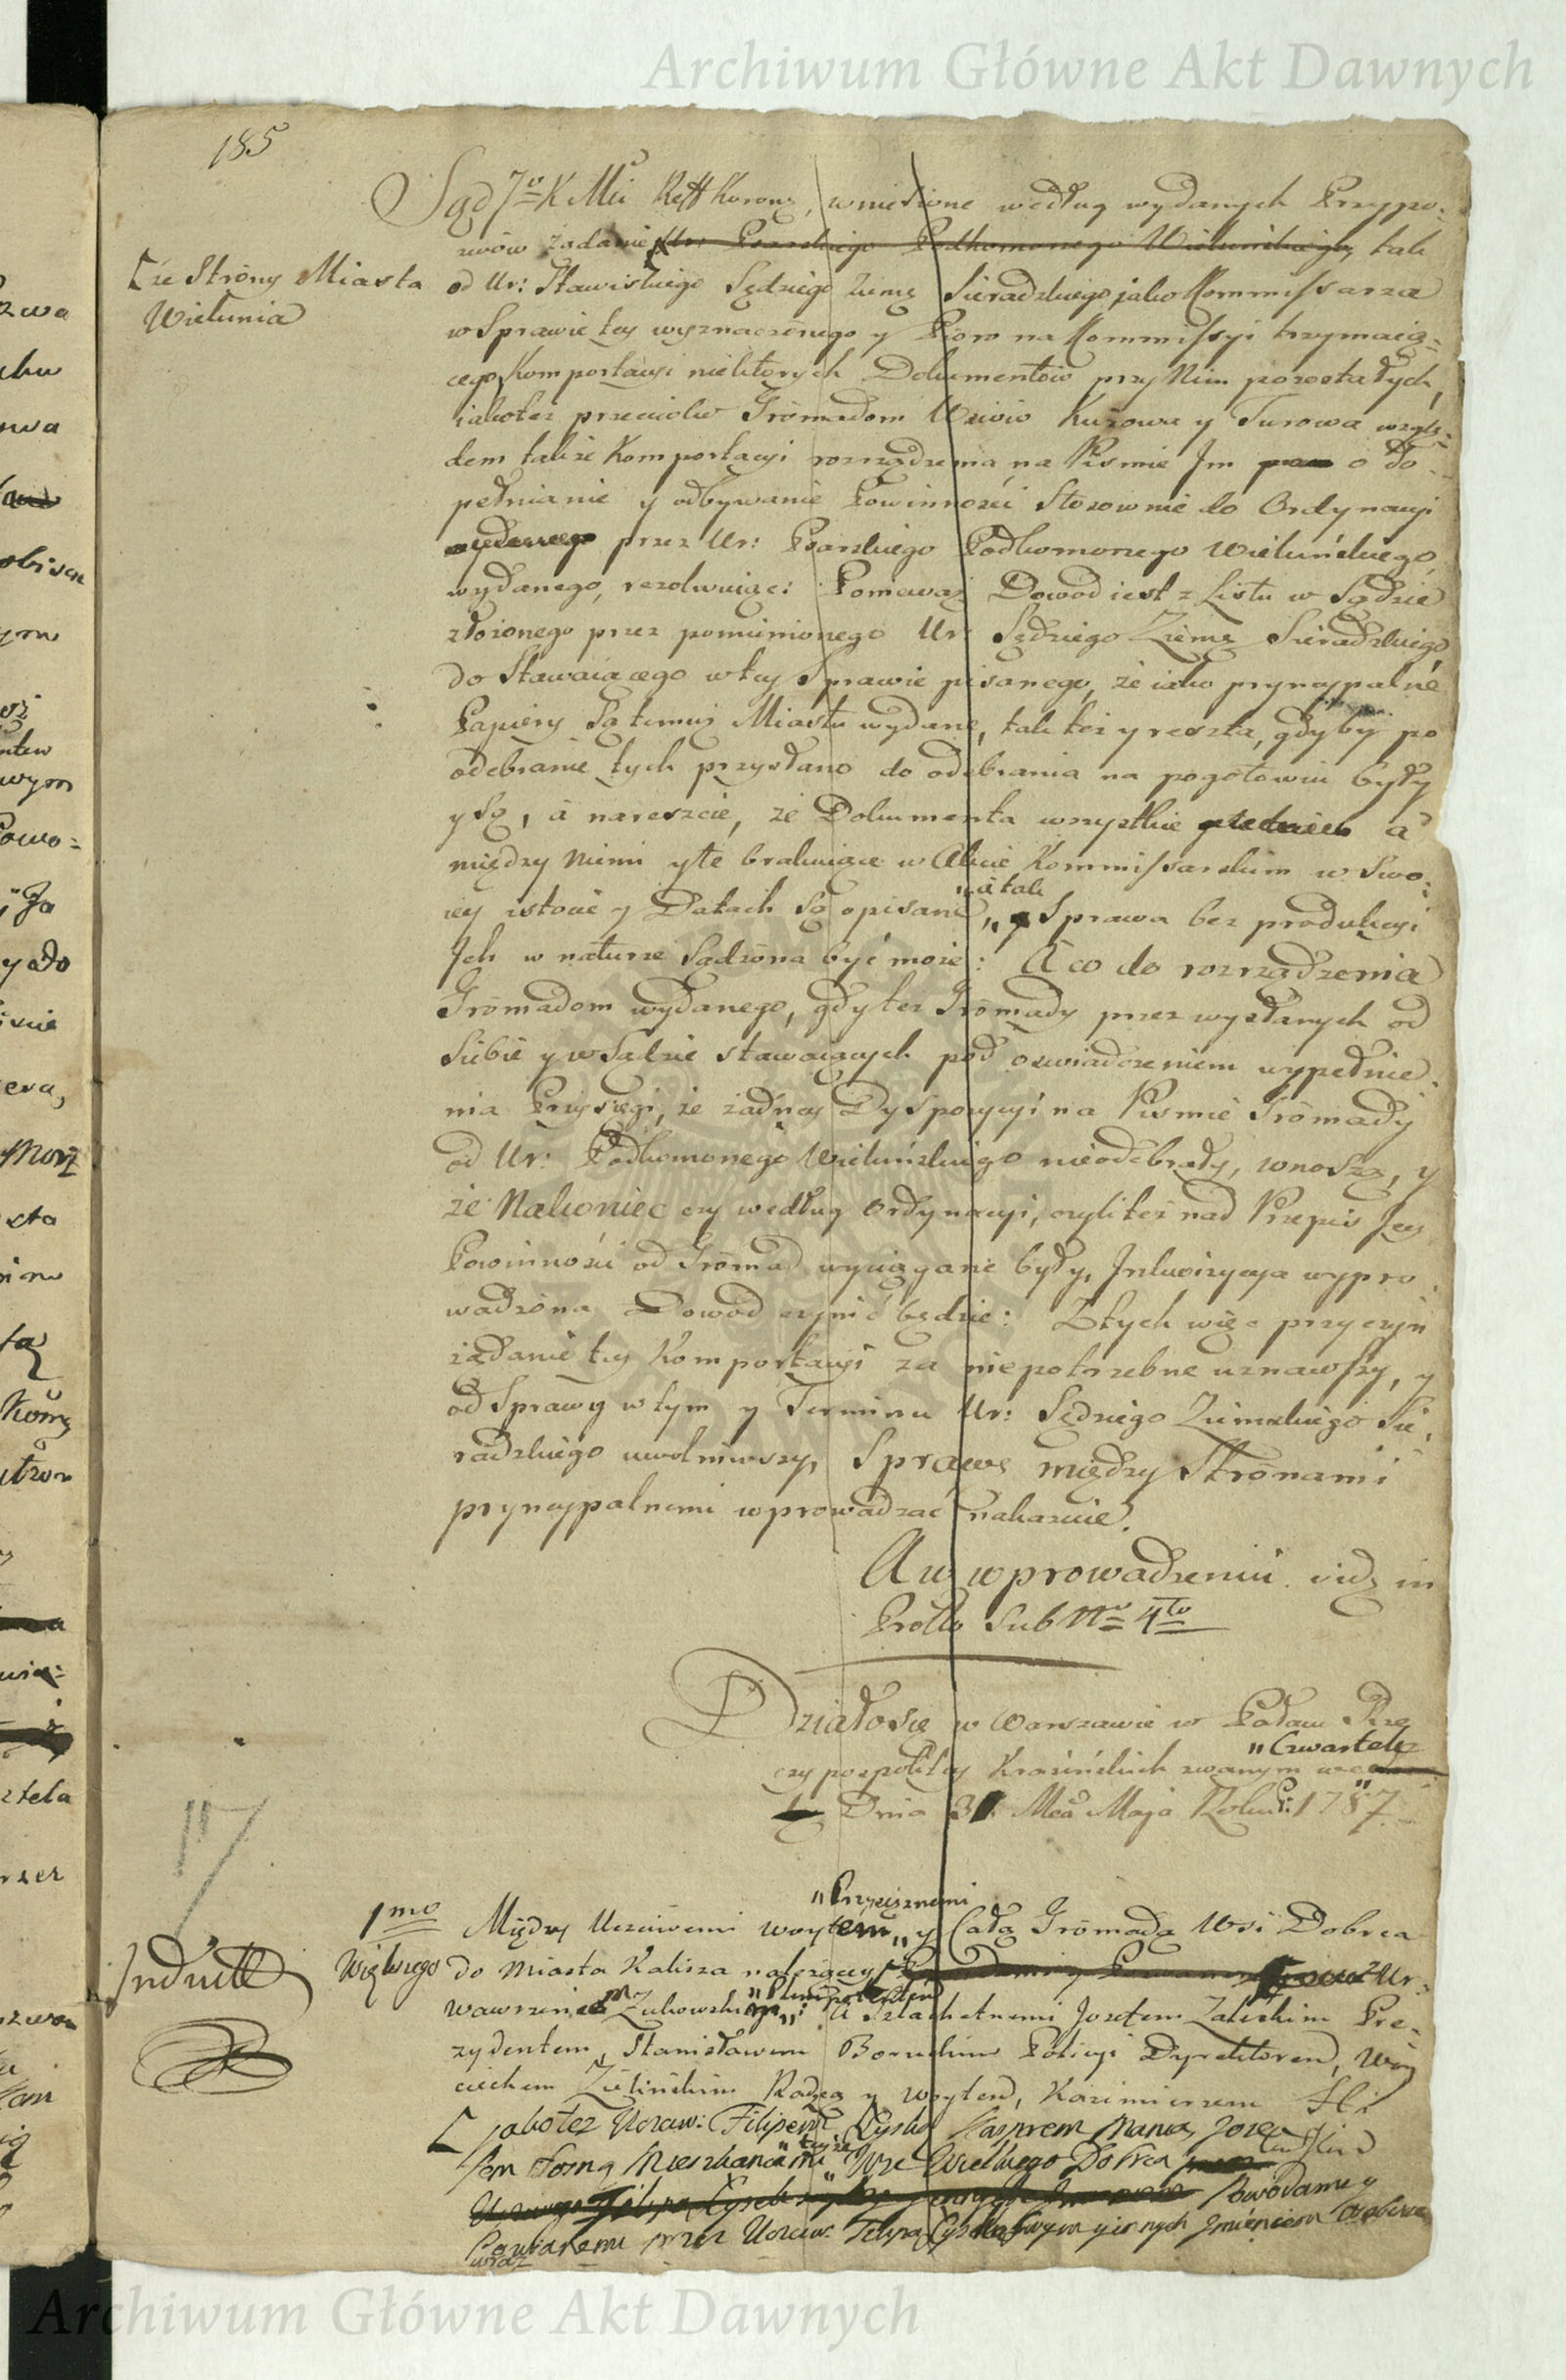 Archiwum Główne Akt Dawnych
185
Sąd JoKMci Reff Koronę, wniesione według wydanych Przypo-
zwów żądanie Ur: Psarskiego Podkomorzego Wieluńskiego, tak
[ze Strony Miasta
Wielunia
od Ur: Stawiskiego Sędziego Ziemę Sieradzkiego, jako Kommissarza
w Sprawie tey wyznaczonego y Pioro na Kommissyi trzymaią-
cego, Komportacyi niektorych Dokumentow przy Nim pozostałych,
iakoteż przeciwko Gromadom Wsiow Kurowa y Turowa wzglę-
dem takze Komportacyi rozrządzenia na Pismie Jm o do-
pełnianie y odbywanie Powinności Stosownie do Ordynacyi
przez Ur: Psarskiego Podkomorzego Wieluńskiego
wydanego, rezolwuiąc: Ponieważ Dowod iest z Listu w Sądzie
złożonego przez pomienionego Ur: Sędziego Ziemę Sieradzkiego
do Stawaiącego w tey Sprawie pisanego, że iako pryncypalne
Papiery Są temuż Miastu wydane, tak też y reszta, gdyby po
odebranie tych przysłano do odebrania na pogotowiu były
y są, a nareszcie, że Dokumenta wszystkie a
między niemi y te brakuiące w Akcie Kommissarskim w Swo-
iey istocie y Datach są opisane, "a tak" Sprawa bez produkcyi
Jch w naturze Sądzona być może: A co do rozrządzenia
Gromadom wydanego, gdy też Gromady przez wysłanych od
Siebie y w Sądzie stawaiących pod oswiadczeniem wypełnie-
nia Przysięgi, że żadney Dyspozycyi na Pismie Gromady
od Ur: Podkomorzego Wieluńskiego nieodebrały, wnoszą, y
że Nakoniec czy według Ordynacyi, czyli też nad Przepis Jey
Powinności od Gromad wyciągane były, Jnkwizycya wypro-
wadzona Dowod czynić będzie: Z tych więc przyczyn
żądanie tey Komportacyi za niepotrzebne uznawszy, y
od Sprawy w tym y Terminu Ur: Sędziego Ziemskiego Sie-
radzkiego uwolniwszy, Sprawę między Stronami
pryncypalnemi wprowadzać nakazuie.
A w wprowadzeniu vide in
Protlo Sub Nro 4to
Działo się w Warszawie w Pałacu Rze
czypospolitey Krasińskich zwanym we "Czwartek
Dnia 31. Mca Maja Roku 1787.
17
1mo Między Uczciwemi Woytem "Przysiężnemi" y Całą Gromadą Wsi Dobrca
Indukt
Większego do Miasta Kalisza należącey Ur:
Wawrzeniec Żukowski "Plenipotentem" A Szlachetnemi Jozefem Zaleskim Pre-
zydentem, Stanisławem Policyi Dyrektorem, Woy
ciechem Zielińskim Radzcą y Woytem, Kazimierzem
[ jakotez Uczciw: Filipem Łysko Kasprem Mania, Jozef-
fem mieszkancami "teyże" Wsi Większego Dobrca
Powodami y
Pozwanemi przez Uczciw: Filipa Łysko Swym y innych Jmieniem
wraz
Archiwum Główne Akt Dawnych